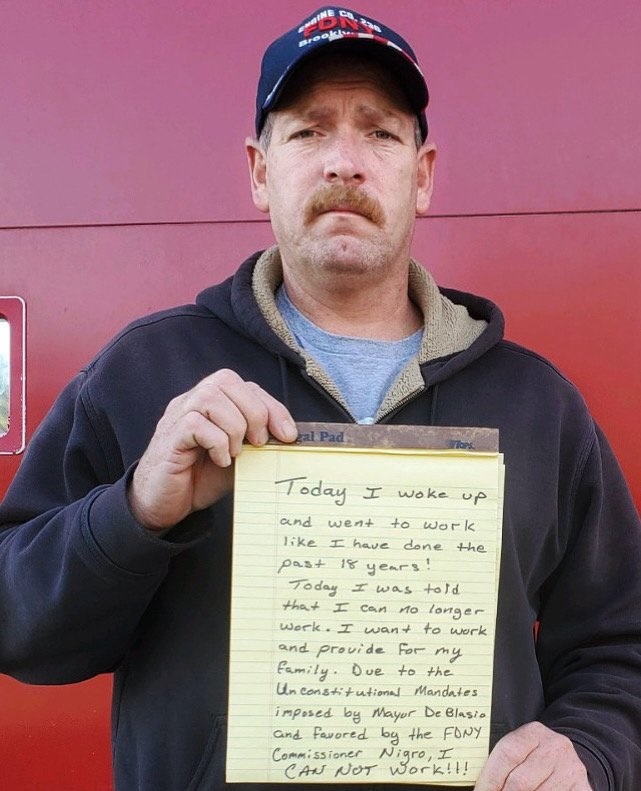 ENGINE CO. 236
FDNY
Brooklyn
gal Pad
TOPS
Today I woke up
and went to work
like I have done the
past 18 years!
Today I was told
that I can no longer
work. I want to work
and provide for my
family. Due to the
Unconstitutional Mandates
imposed by Mayor DeBlasio
and favored by the FDNY
Commissioner Nigro, I
CAN NOT Work!!!